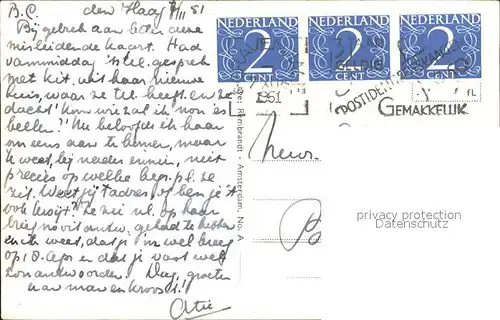 B.C. den Haag 7/11 51
Bij gebrek aan beter deze
misleidende kaart. Had
vanmiddag 'n tel. gesprek
met Kit, uit haar nieuwe
huis, waar ze tel. heeft en ze
dacht "kom wie zal ik nou 'es
bellen?" Nu beloofde ik haar
om eens aan te komen, maar
U weet, bij nader inzien, niet
precies op welke
zit. Weet jij 't adres of ben je 't
ook kwijt? Ze zei nl. op haar
brief nooit antw. gehad te hebben
en ik weet, dat je 'm wel kreeg
op 18 en dat je vast wel
zou antwoorden. Dag, groeten
aan man en kroost!
Atie
NEDERLAND
2
CENT
NEDERLAND
2
CENT
NEDERLAND
2
CENT
1951
POSTIDENTITEITSKAART
GEMAKKELIJK
Rembrandt - Amsterdam. No. A
Mevr.
privacy protection
Datenschutz